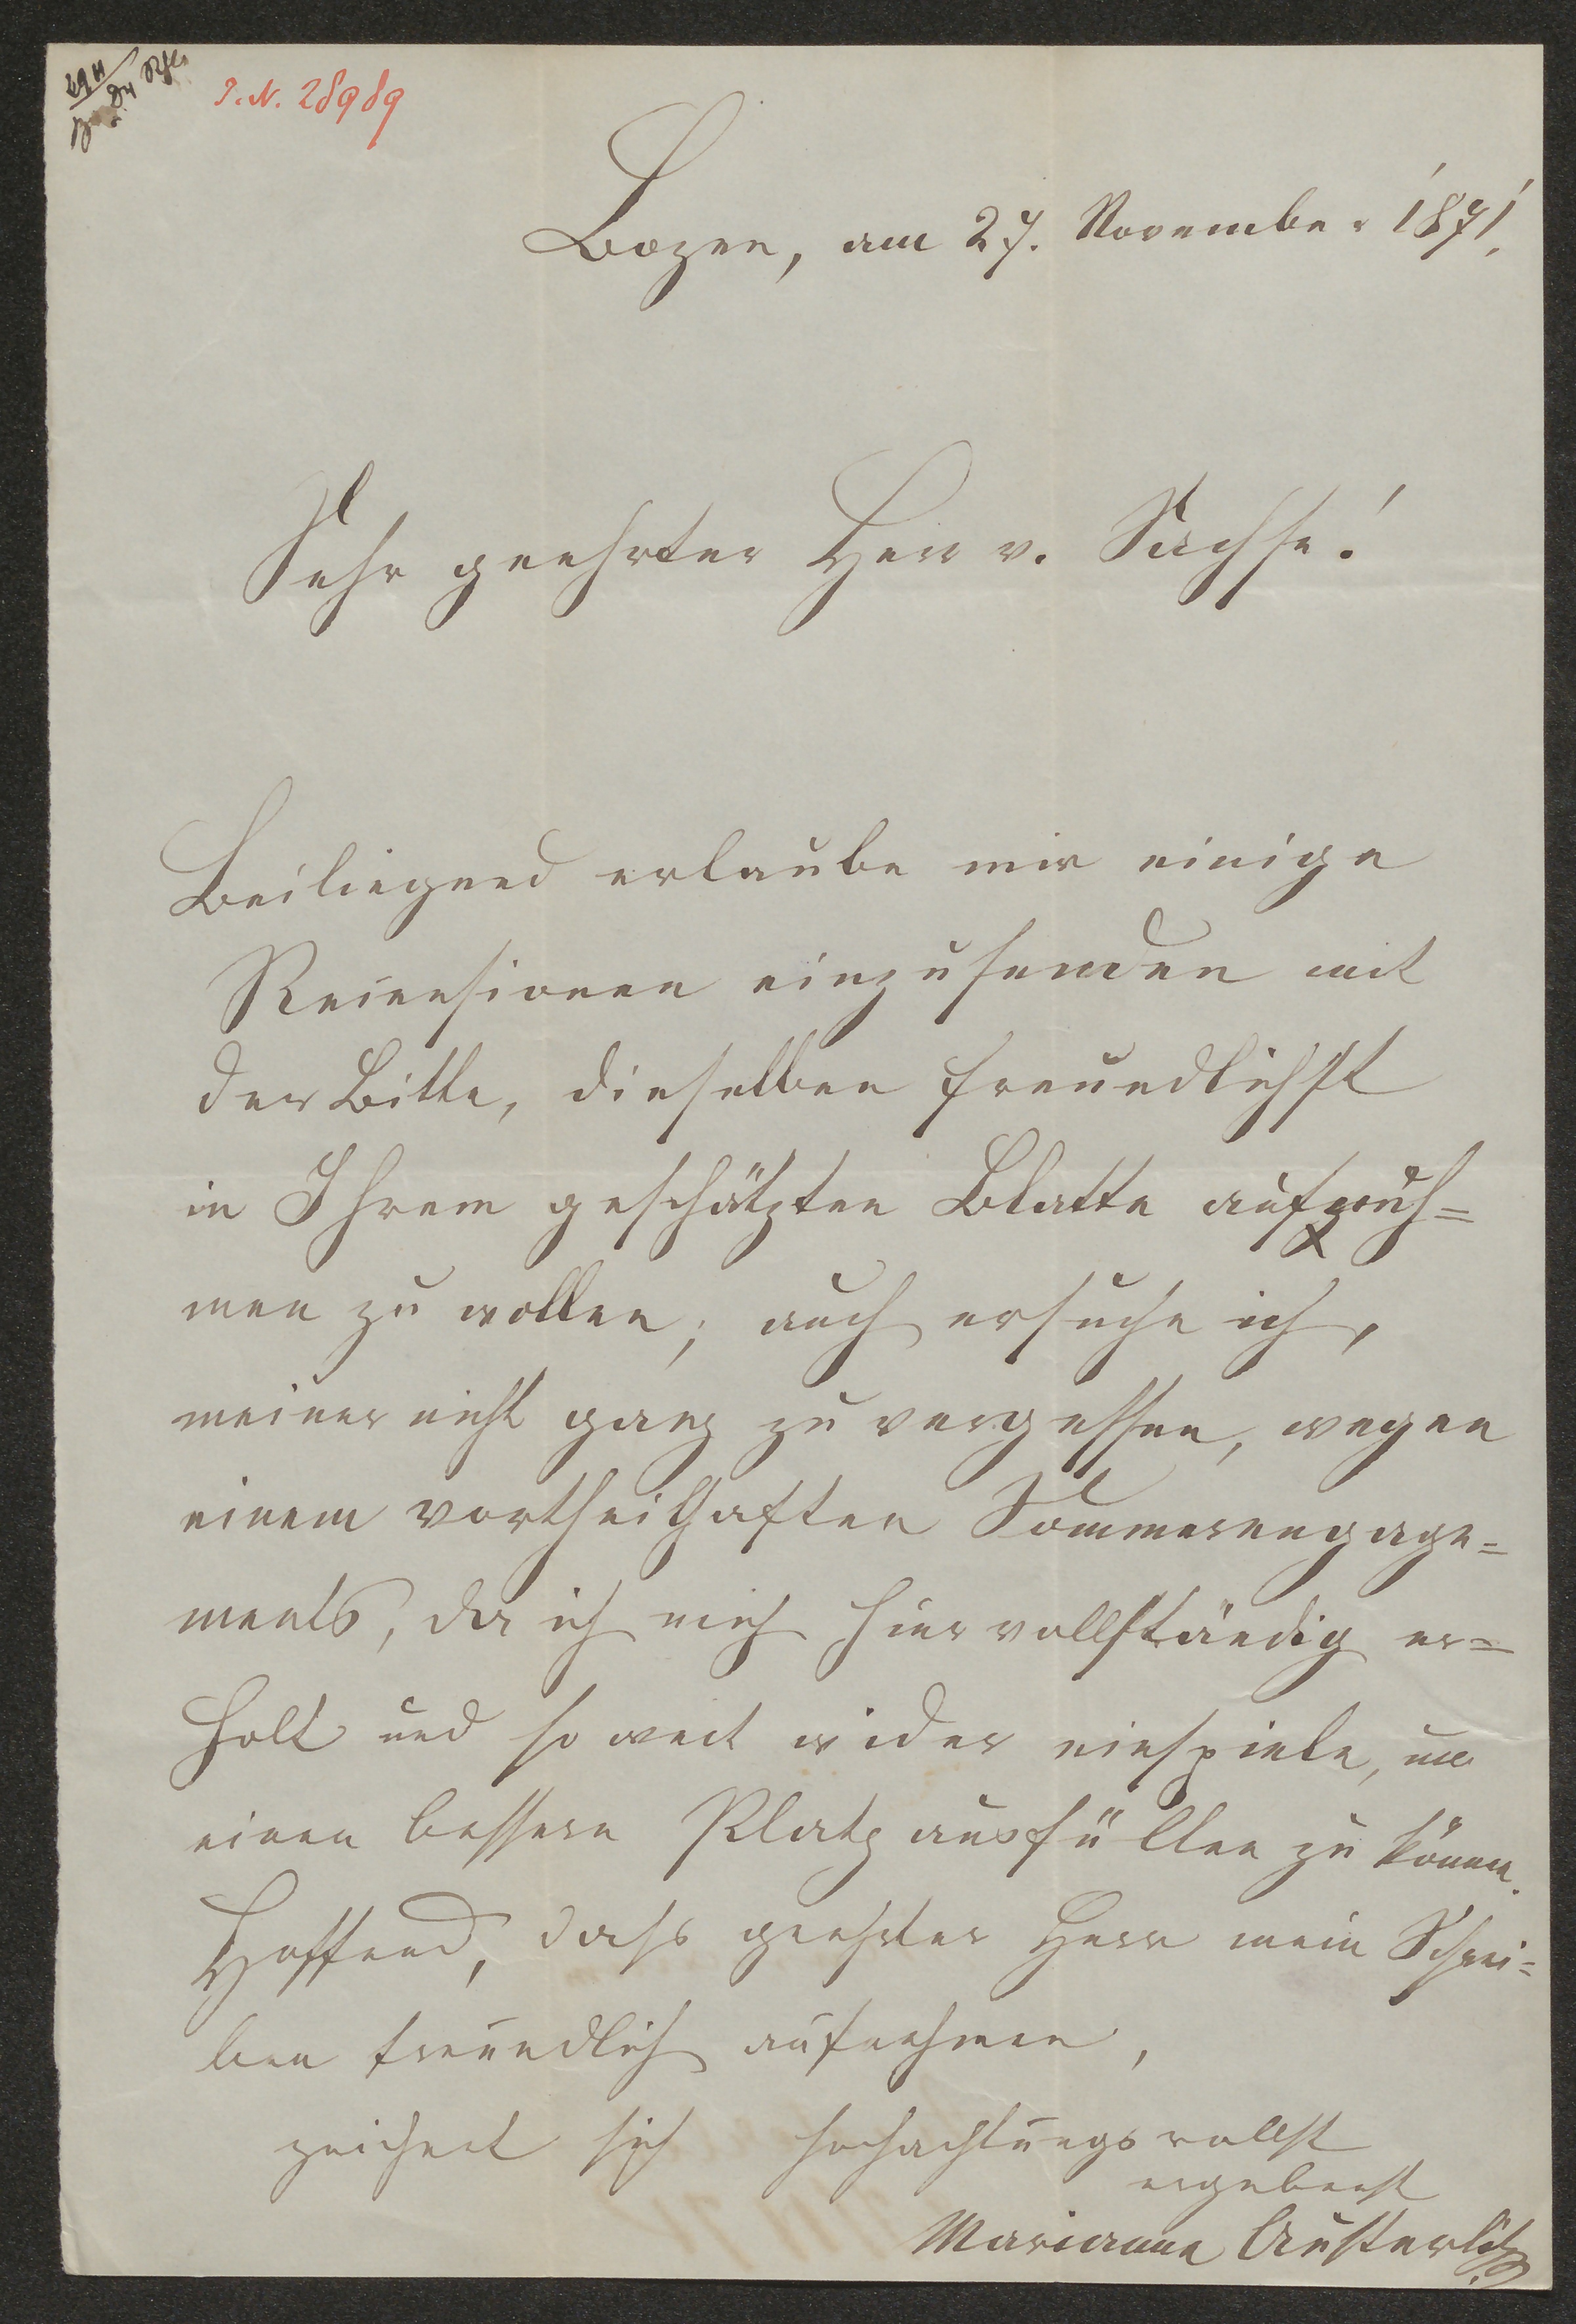 I. N. 28989
Bozen, am 27. November 1871.
Sehr geehrter Herr v. Sachse!
Beiliegend erlaube mir einige
Recensionen einzusenden mit
der Bitte, dieselben freundlichst
in Ihrem geschätzten Blatte aufzuneh=
men zu wollen; auch ersuche ich,
meiner nicht ganz zu vergessen, wegen
einem vortheilhaften Sommerengage=
ments, da ich mich hier vollständig er=
holt und so weit wider einspiele, um
einen bessern Platz ausfüllen zu können.
Hoffend, dass geehrter Herr mein Schrei=
ben freundlich aufnehmen,
zeichnet sich hochachtungsvollst
ergebenst
Marianne Austerlitz